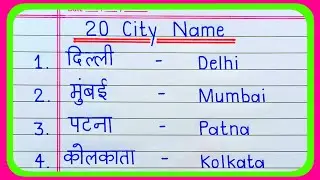 20 City Name
1. दिल्ली - Delhi
2. मुंबई - Mumbai
3. पटना - Patna
4. कोलकाता - Kolkata